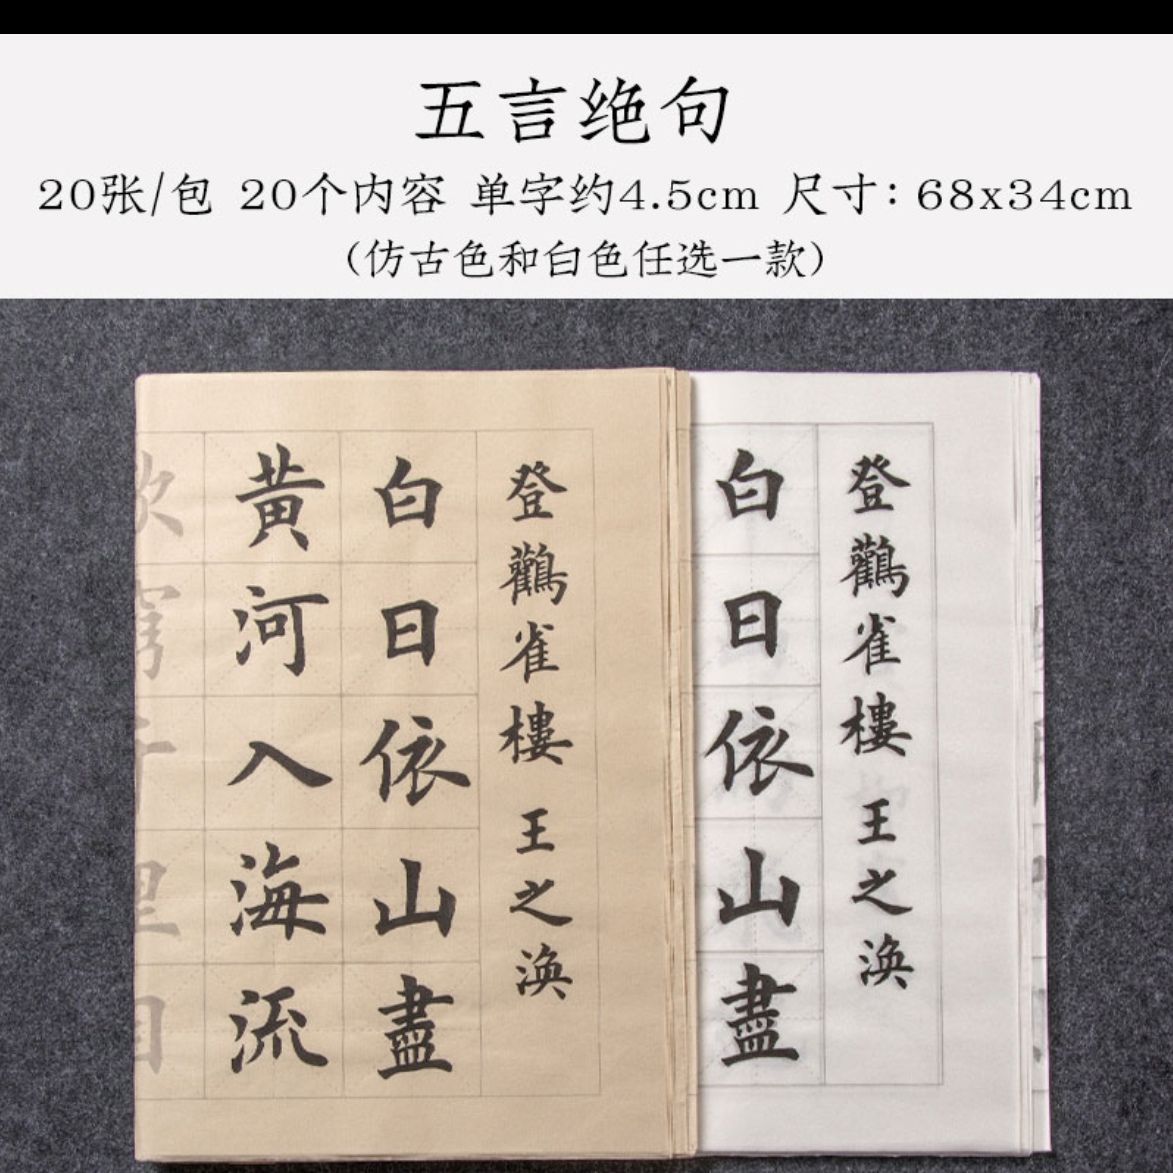 五言绝句
20张/包 20个内容 单字约4.5cm 尺寸：68x34cm
（仿古色和白色任选一款）
登鸛雀樓 王之渙
白日依山盡
黃河入海流
欲窮千里目
登鸛雀樓 王之渙
白日依山盡